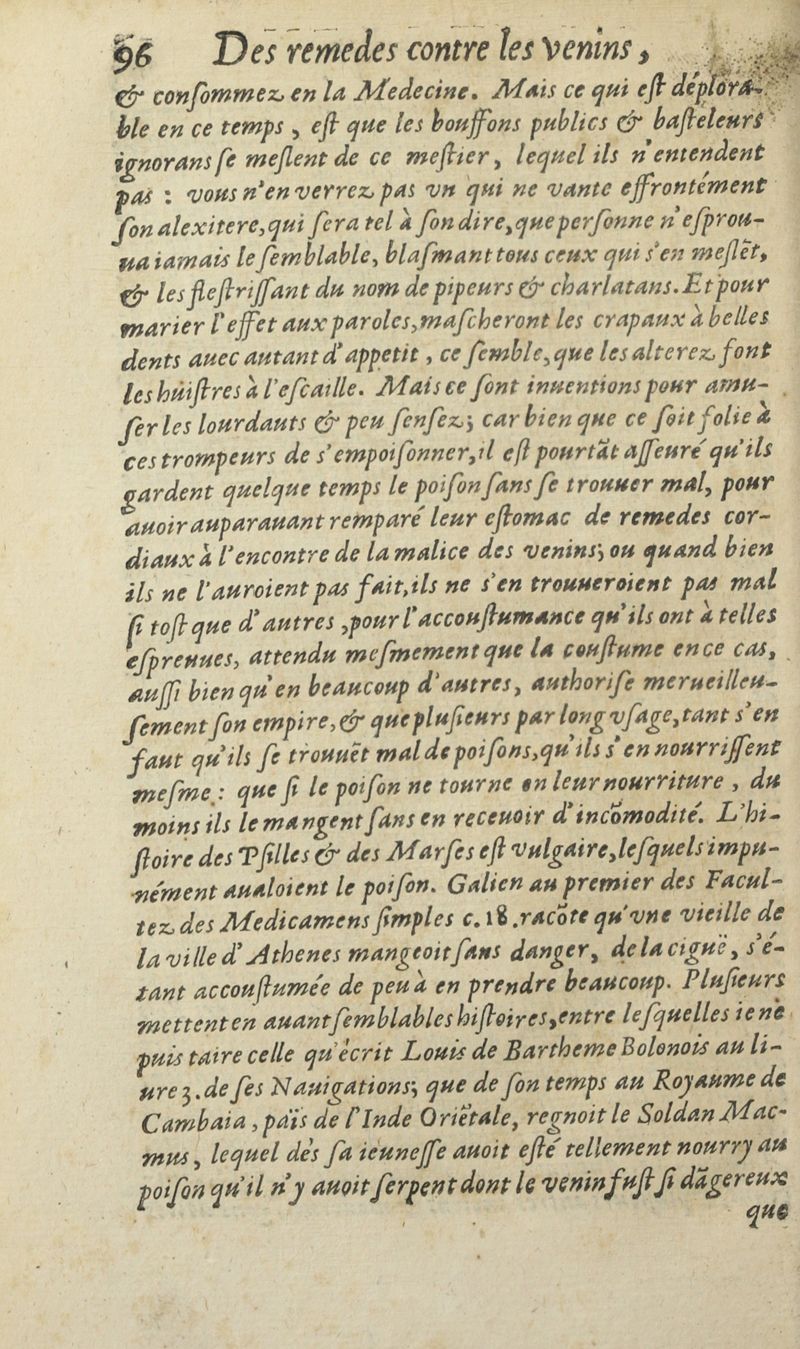 96 Des remedes contre les venins,
& conſommez en la Medecine. Mais ce qui eſt déplora-
ble en ce temps, eſt que les bouffons publics & baſteleurs
ignorans ſe meſlent de ce meſtier, lequel ils n'entendent
pas : vous n'en verrez pas vn qui ne vante effrontément
ſon alexitere, qui ſera tel à ſon dire, que perſonne n'eſprou-
ua iamais le ſemblable, blaſmant tous ceux qui s'en meſlẽt,
& les fleſtriſſant du nom de pipeurs & charlatans. Et pour
marier l'effet aux paroles, maſcheront les crapaux à belles
dents auec autant d'appetit, ce ſemble, que les alterez font
les huiſtres à l'eſcaille. Mais ce ſont inuentions pour amu-
ſer les lourdauts & peu ſenſez; car bien que ce ſoit folie à
ces trompeurs de s'empoiſonner, il eſt pourtãt aſſeuré qu'ils
gardent quelque temps le poiſon ſans ſe trouuer mal, pour
auoir auparauant remparé leur eſtomac de remedes cor-
diaux à l'encontre de la malice des venins; ou quand bien
ils ne l'auroient pas fait, ils ne s'en trouueroient pas mal
ſi toſt que d'autres, pour l'accouſtumance qu'ils ont à telles
eſpreuues, attendu meſmement que la couſtume en ce cas,
auſſi bien qu'en beaucoup d'autres, authoriſe merueilleu-
ſement ſon empire, & que pluſieurs par long vſage, tant s'en
faut qu'ils ſe trouuẽt mal de poiſons, qu'ils s'en nourriſſent
meſme : que ſi le poiſon ne tourne en leur nourriture, du
moins ils le mangent ſans en receuoir d'incõmodité. L'hi-
ſtoire des Pſilles & des Marſes eſt vulgaire, leſquels impu-
nément aualoient le poiſon. Galien au premier des Facul-
tez des Medicamens ſimples c. 18. racõte qu'vne vieille de
la ville d'Athenes mangeoit ſans danger, de la ciguë, s'é-
tant accouſtumée de peu à en prendre beaucoup. Pluſieurs
mettent en auant ſemblables hiſtoires, entre leſquelles ie ne
puis taire celle qu'écrit Louis de Bartheme Bolonois au li-
ure 3. de ſes Nauigations; que de ſon temps au Royaume de
Cambaia, païs de l'Inde Oriẽtale, regnoit le Soldan Mac-
mus, lequel dès ſa ieuneſſe auoit eſté tellement nourry au
poiſon qu'il n'y auoit ſerpent dont le venin fuſt ſi dãgereux
que